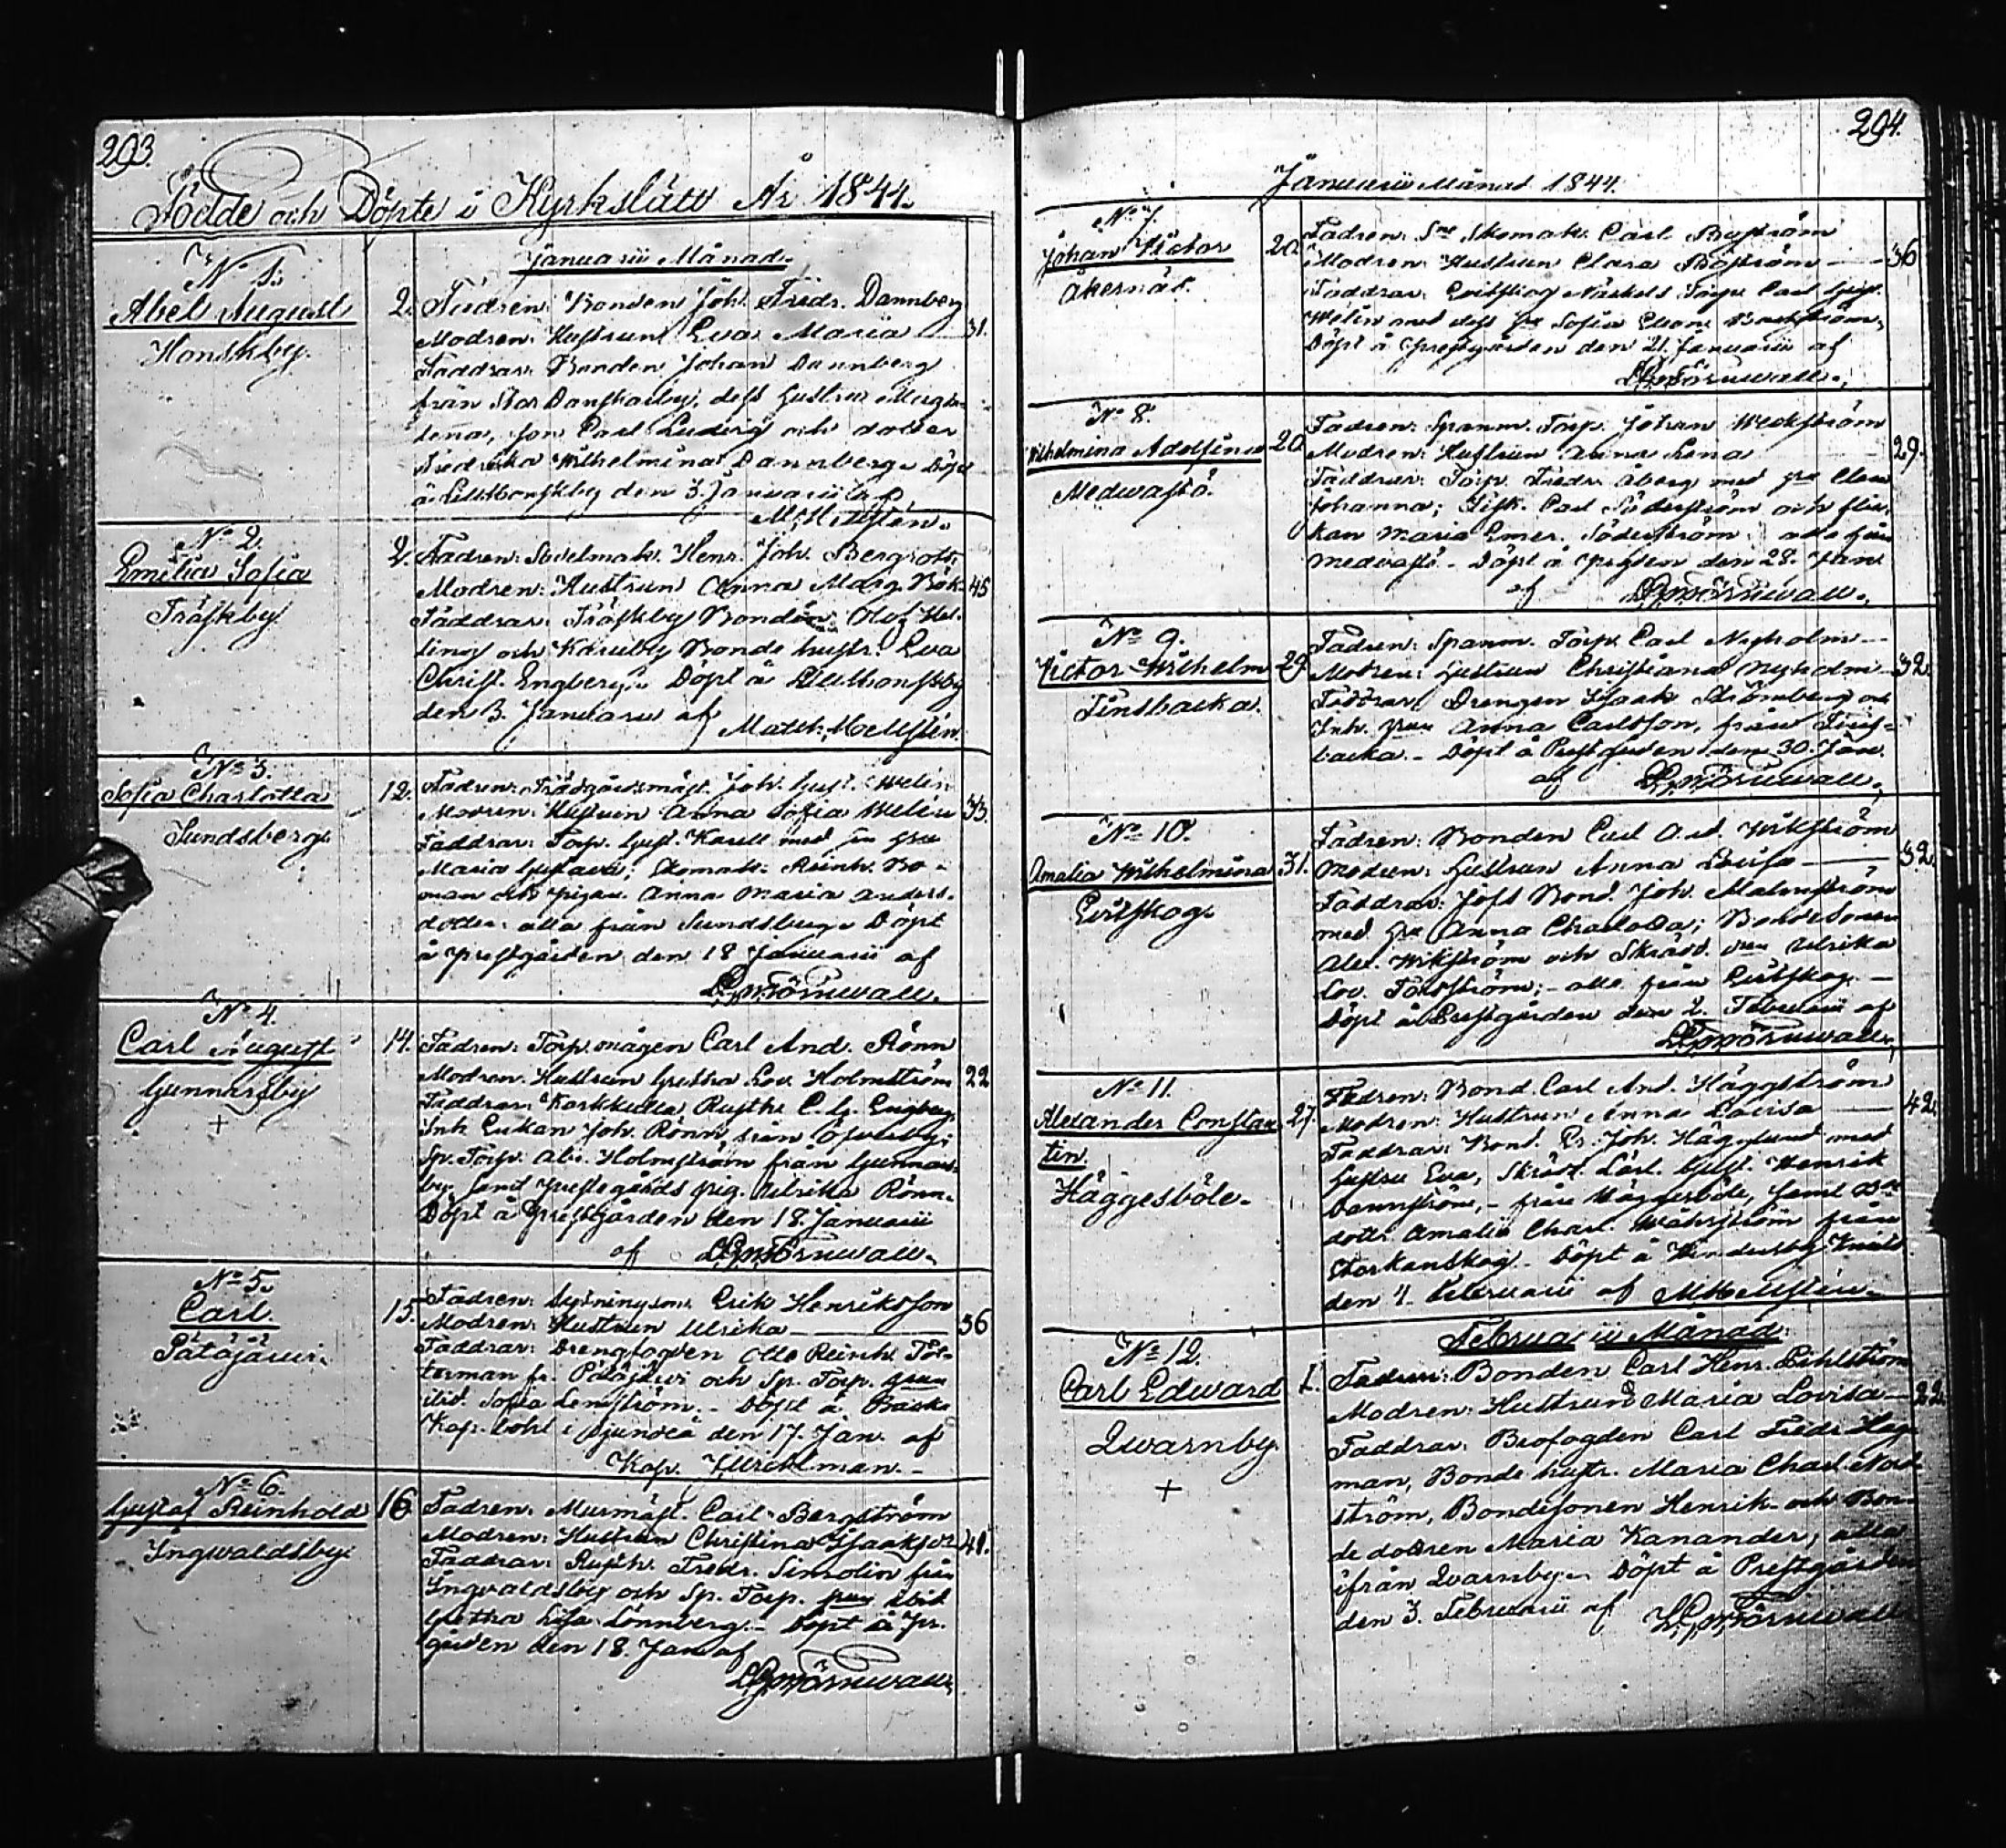 293.
Födde och Döpte i Kyrkslätt År 1844.
Januarii Månad.
No 1.
Abel August
Honskby.
2.
Fadren: Bonden Joh. Fredr. Dannberg
Modren: Hustrun Eva Maria
31.
Faddrar: Bonden Johan Dannberg
från Stor Danskarby, dess hustru Magda-
lena, son Carl Ludvig och dotter
Fredrika Wilhelmina Dannberg. Döpt
å Lillhonskby den 3. Januarii af
M. Mollstén.
No 2.
Emilia Sofia
Träskby
2.
Fadren: Sadelmak. Henr. Joh. Bergroth,
Modren: Hustrun Anna Marg. Bök
45
Faddrar: Träskby Bonden Olof Hel-
ling och Karuby Bonde hustr. Eva
Christ. Engberg. Döpt å Lillhonskby
den 3. Januarii af Matth. Mollstén.
No 3.
Sofia Charlotta
Sundsberg
12.
Fadren: Trädgårdsmäst. Joh. Gust. Welin
Modren: Hustrun Anna Sofia Welin
33.
Faddrar: Torp. Gust. Karell med
Maria Gustava; Skomak. Reinh. Bo-
man och pigan Anna Maria Anders-
dotter alla från Sundsberg. Döpt
å prestgården den 18 Januarii af
Törnwall.
No 4.
Carl August
Gunnarsby
+
14.
Fadren: Torp. mågen Carl And. Rönn
Modren: Hustrun Gretha Lov. Holmström
22
Faddrar: Karkkulla Rusth. C. G. Engberg,
Inh Enkan Joh. Rönn från Öfverby;
Sp. Torp. Alex. Holmström från Gunnars-
by samt prestegårds pig. Ulrika Rönn.
Döpt å Prestgården den 18. Januarii
af Törnwall.
No 5.
Carl
Pätäjärvi.
15.
Fadren: Sytningsm. Erik Henriksson
Modren: Hustrun Ulrika
36
Faddrar: Drengfogden Otto Reinh. Tös-
terman fr. Pätäjärvi och Sp. Torp.
ibid. Sofia Lemström. Döpt å
Kap. bohl i Sjundeå den 17. Jan. af
Kap.
No 6.
Gustaf Reinhold
Ingwaldsby.
16
Fadren: Murmäst. Carl Bergström
Modren: Hustrun Christina Isaaksd:r
41.
Faddrar: Rusth. Fredr. Simolin från
Ingvaldsby och Sp. Torp. ibid
Gretha Lisa Lönnberg. Döpt å Pr.
gården den 18. Jan af
Törnwall.
294.
Januarii Månad 1844.
No 7.
Johan Victor
Åkernäs.
20.
Fadren: Skomak. Carl Boström
Modren: Hustrun Clara Boström
36
Faddrar: Evitskog Torp. Carl Gust.
Welin med dess Sofia
Döpt å Prestgården den 21. Januarii af
Törnwall.
No 8.
Wilhelmina Adolfina
Medvastö.
20
Fadren: Spanm. Torp. Johan Weckström
Modren: Hustrun Anna Lena
29.
Faddrar: Torp. Fredr. Åberg med
Johanna; Fisk. Carl Söderström och flic-
kan Maria Emer. Söderström alla från
Medvastö. Döpt å Prgden den 28. Jan
af Törnwall.
No 9.
Victor Wilhelm
Finsbacka.
29
Fadren: Spanm. Torp. Carl Nyholm
Modren: Hustrun Christiana Nyholm
32.
Faddrar: Drengen Isaak Strömberg och
Inh. Anna Carlsson, från Fins-
backa. Döpt å Prestgården den 30. Jan.
af Törnwall.
No 10.
Amalia Wilhelmina
Evitskog.
31.
Fadren: Bonden Carl And. Wikström
Modren: Hustrun Anna Lovisa
32.
Faddrar: Joss Bond. Joh. Malmström
med Anna Charlotta; Bondesonen
Alex. Wikström och Skrädd. Ulrika
Lov. Forsström; alla från Evitskog
Döpt å Prestgården den 2. Februarii af
Törnwall.
No 11.
Alexander Constan
tin.
Häggesböle.
27.
Fadren: Bond. Carl And. Häggström
Modren: Hustrun Anna Lovisa
42.
Faddrar: Bond. Er. Joh. Hägglund med
hustru Eva, Skrädd. Lärl. Gust. Henrik
från Häggesböle, samt
dott. Amalia Charl. Wåhrström från
Storkanskog. Döpt å Hindersby
den 4. Februarii af M. Mollstén.
Februarii Månad.
No 12.
Carl Edward
Qwarnby
+
1.
Fadren: Bonden Carl Henr. Lihlström
Modren: Hustrun Maria Lovisa
22.
Faddrar: Brofogden Carl Fredr. Hag-
man, Bonde hustr. Maria Charl. Nord-
ström, Bondesonen Henrik och Bon-
de dottren Maria Kanander, alla
ifrån Qvarnby. Döpt å Prestgården
den 3. Februarii af Törnwall.